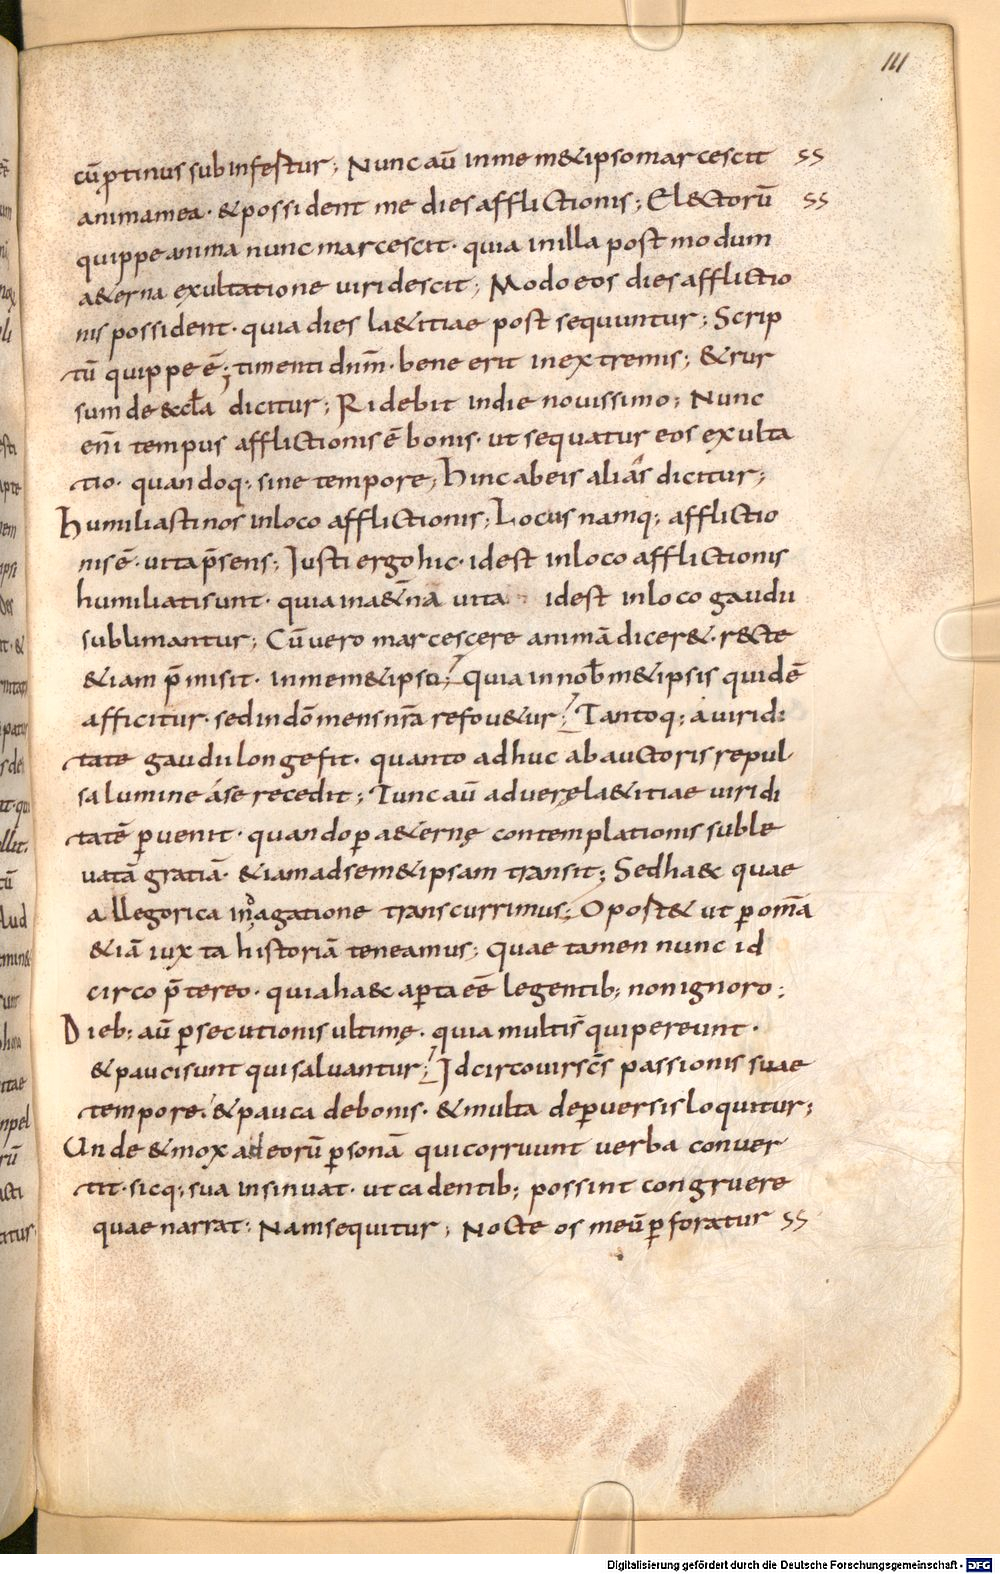 111
cū ꝓtinus subinfestur; Nunc aū inmem&ipso marcescit ss
animamea· &possident me dies afflictionis; Electorū ss
quippe anima nunc marcescit· quia inilla post modum
a&erna exultatione uiridescit; Modo eos dies afflictio
nis possident· quia dies la&itiae post sequuntur; Scrip
tū quippe ē; timenti dnm̄· bene erit inextremis; &rur
sum de &cƚa dicitur; Ridebit indie nouissimo; Nunc
eni̅ tempus afflictionis ē bonis· ut sequatur eos exulta
tio· quandoq; sine tempore; hinc abeis aliás dicitur;
humiliasti nos inloco afflictionis; Locus namq; afflictio
nis ē· uita p̄sens; Justi ergo hic· idest inloco afflictionis
humiliati sunt· quia ina&n̄a uita idest inloco gaudii
sublimantur; Cū uero marcescere animā dicer&· recte
&iam p̄misit· inmem&ipso; quia innob̄m&ipsis quidē
afficitur· sed indō mens nr̄a refou&ur; Tantoq; a uiridi
tate gaudii longe fit· quanto adhuc ab auctoris repul
sa lumine áse recedit; Tunc aū ad uerę la&itiae uiridi
tatē ꝑuenit· quando ꝑ a&ernę contemplationis suble
uatā gratiā· &iam ad sem&ipsam transit; Sed ha&c quae
allegorica indagatione transcurrimus; Oport& ut ꝑ om̄a
&iā iuxta historiā teneamus; quae tamen nunc id
circo p̄tereo· quia ha&c aꝑta eē legentib; non ignoro;
Dieb; aū ꝑsecutionis ultimę· quia multis̄ qui pereunt·
&pauci sunt qui saluantur; Idcirco uir sc̄s passionis suae
tempore· &pauca de bonis· &multa de ꝑuersis loquitur;
Unde &mox ad eorū ꝑsonā qui corruunt uerba conuer
tit· sicq; sua insinuat· ut cadentib; possint congruere
quae narrat; Nam sequitur; Nocte os meū ꝑforatur ss
Digitalisierung gefördert durch die Deutsche Forschungsgemeinschaft - DFG